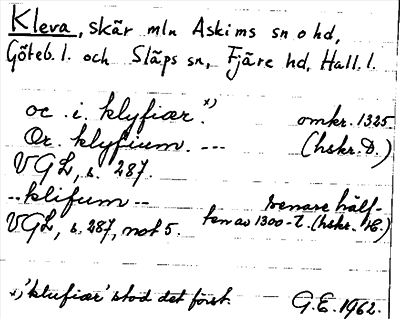 Kleva, skär mln Askims sn o hd,
Göteb. l. och Släps sn, Fjäre hd, Hall. l.
oc . i. klyfiær. x) omkr. 1325
Or. klyfium. --- (hskr. D.)
VGL, s. 287.
-- klifum -- senare hälf-
VGL, s. 287, not 5. ten av 1300-t. (hskr. E.)
x) 'klufiær' stod det först. G.E. 1962.